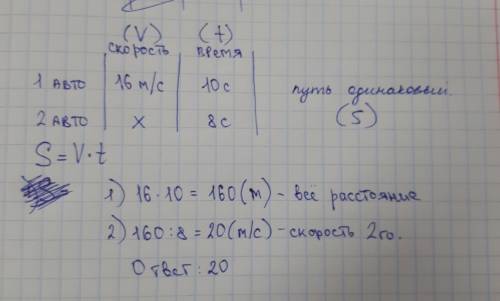 (V) (t)
скорость время
1 авто 16 м/с 10с путь одинаковый.
2 авто x 8с (S)
S = V · t
1) 16 · 10 = 160 (м) - всё расстояние
2) 160 : 8 = 20 (м/с) - скорость 2го.
Ответ : 20